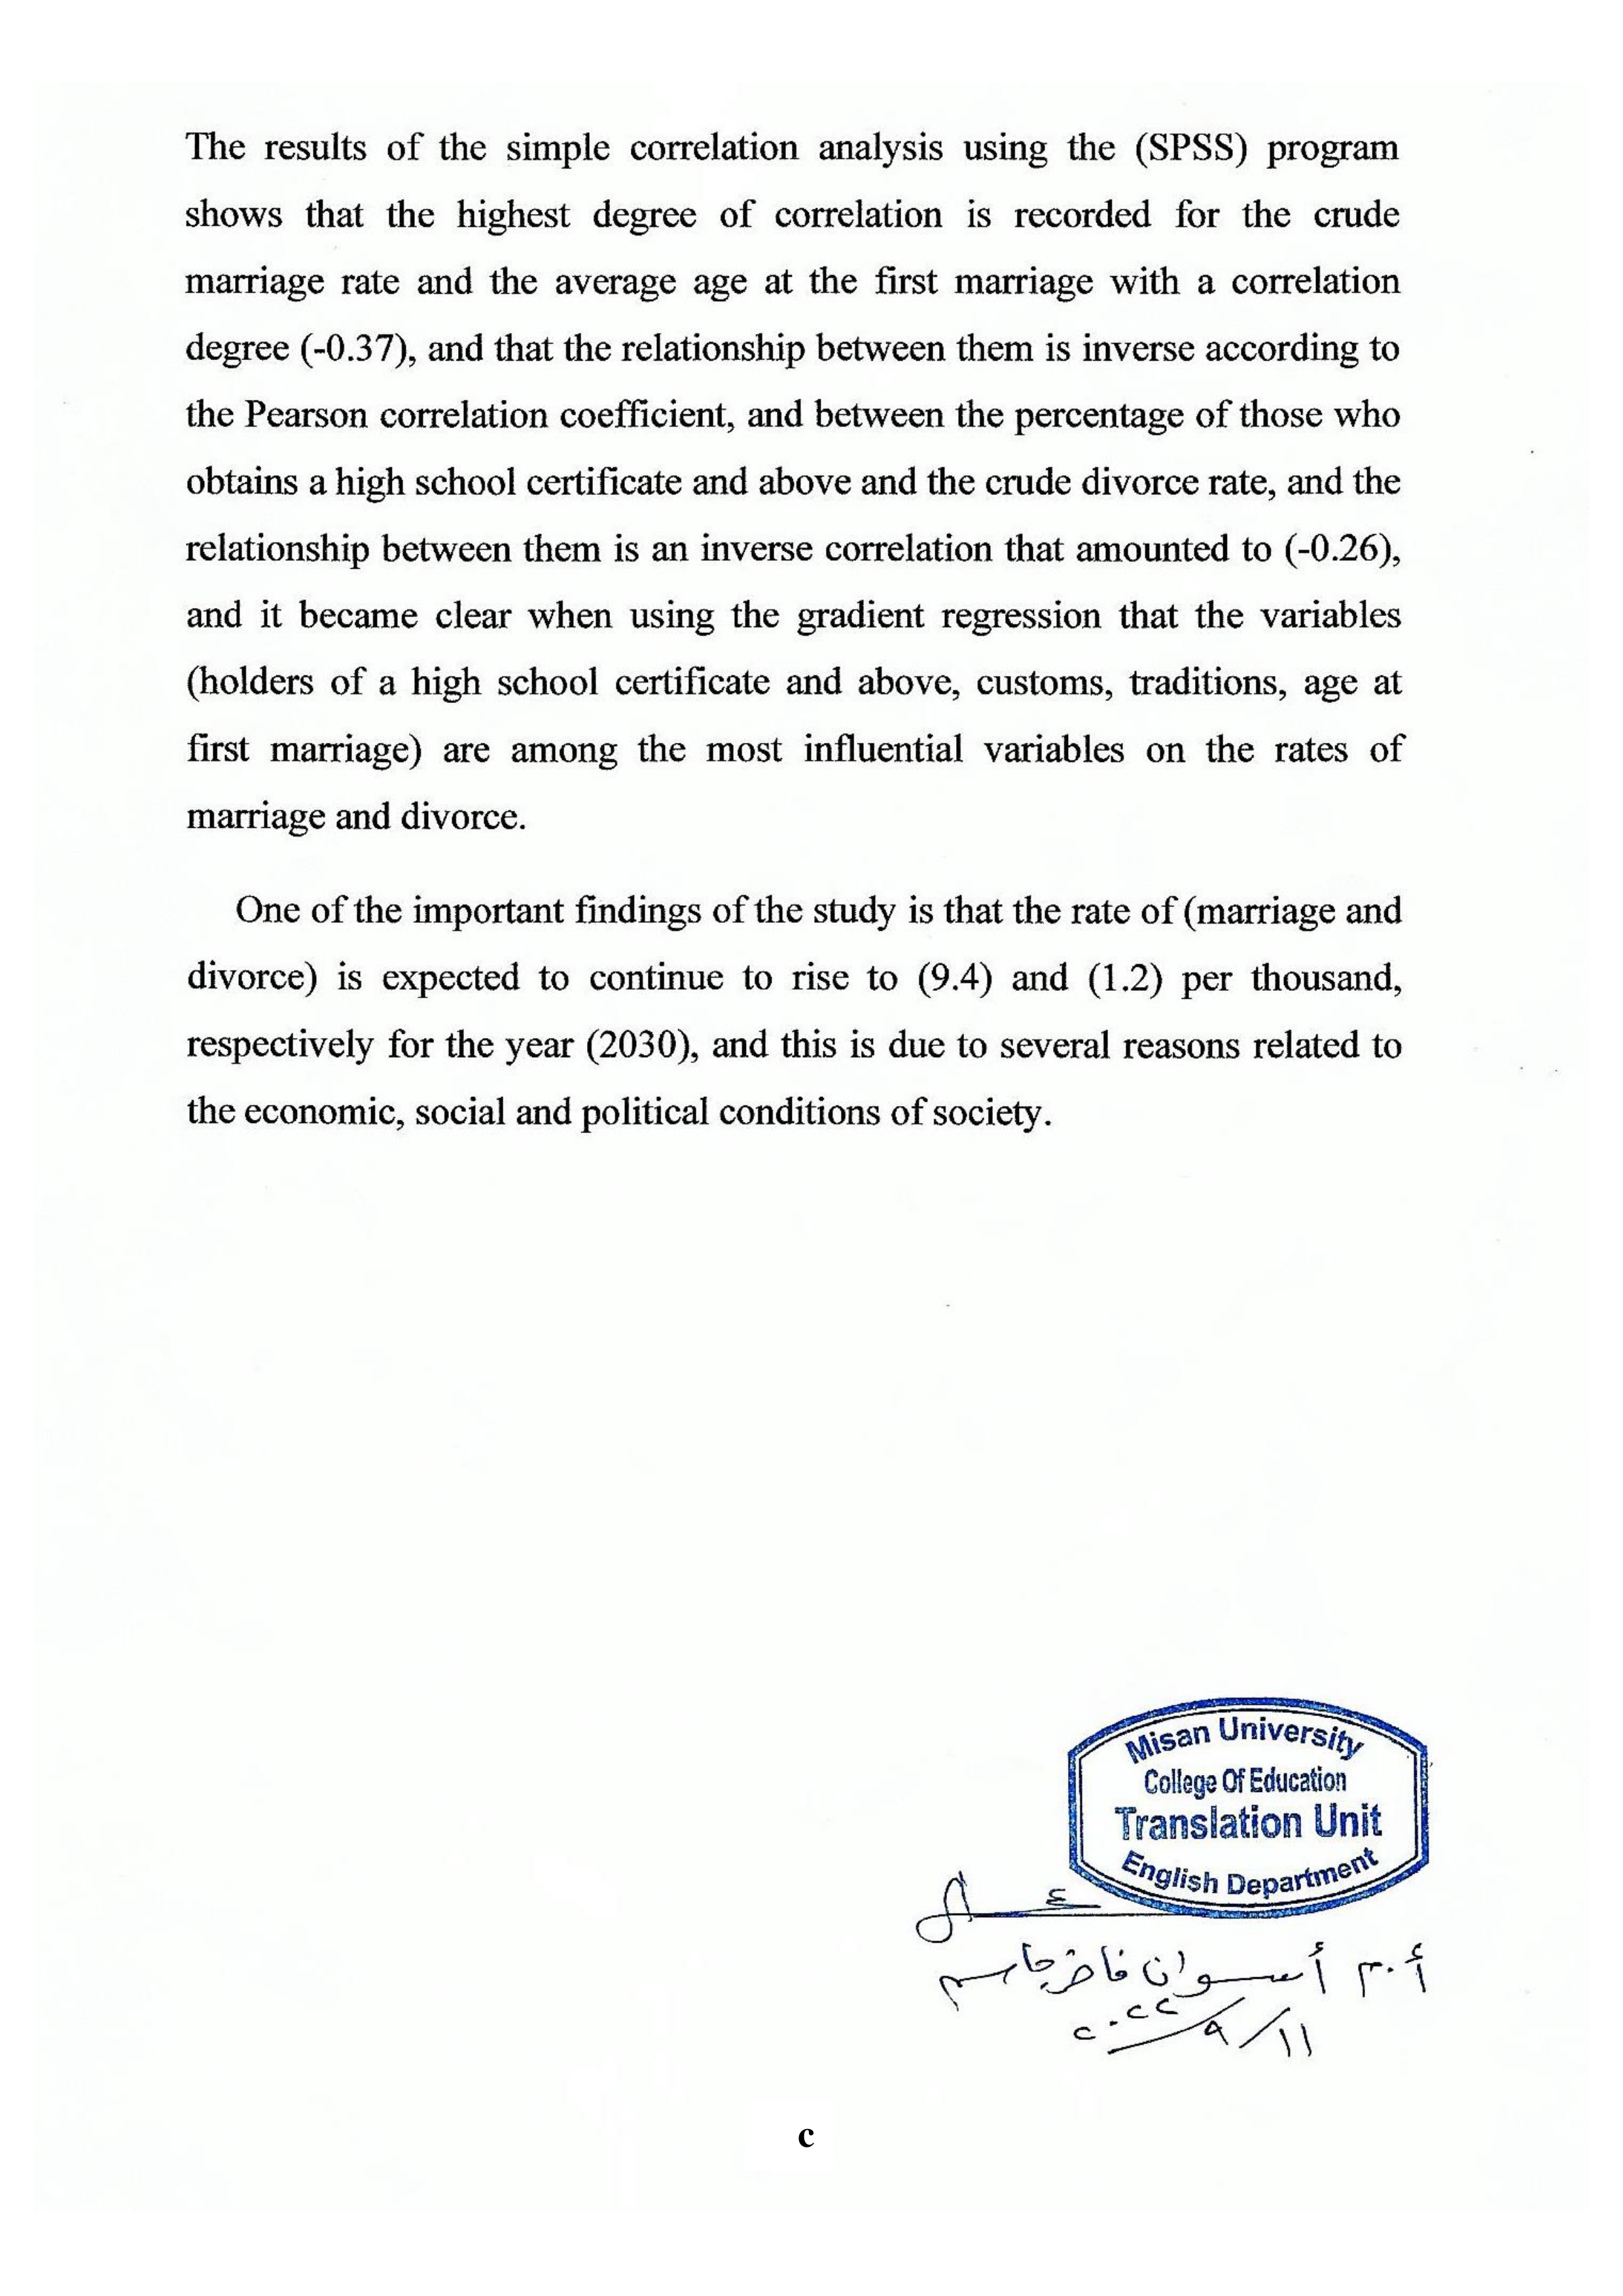 The results of the simple correlation analysis using the (SPSS) program
shows that the highest degree of correlation is recorded for the crude
marriage rate and the average age at the first marriage with a correlation
degree (-0.37), and that the relationship between them is inverse according to
the Pearson correlation coefficient, and between the percentage of those who
obtains a high school certificate and above and the crude divorce rate, and the
relationship between them is an inverse correlation that amounted to (-0.26),
and it became clear when using the gradient regression that the variables
(holders of a high school certificate and above, customs, traditions, age at
first marriage) are among the most influential variables on the rates of
marriage and divorce.
One of the important findings of the study is that the rate of (marriage and
divorce) is expected to continue to rise to (9.4) and (1.2) per thousand,
respectively for the year (2030), and this is due to several reasons related to
the economic, social and political conditions of society.
Misan University
College Of Education
Translation Unit
English Department
أ.م أسوان فاخر جاسم
١١/٩/٢٠٢٢
c